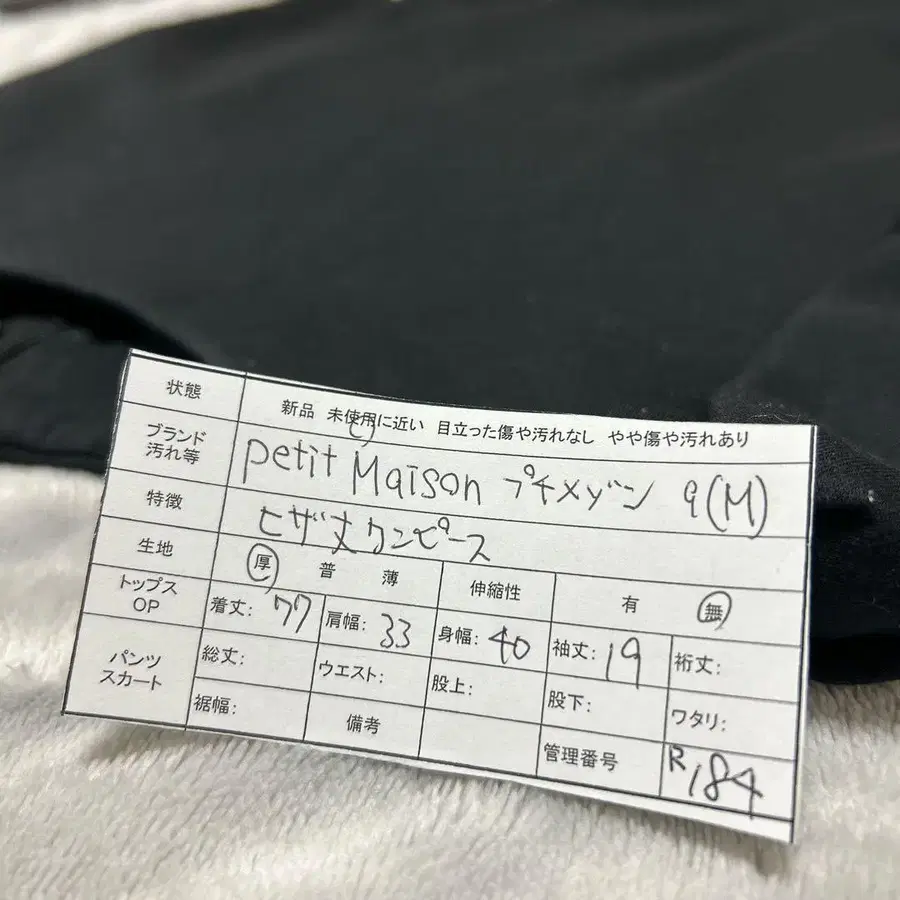 状態 新品 未使用に近い 目立った傷や汚れなし やや傷や汚れあり
ブランド 汚れ等 petit Maison プチメゾン 9(M)
特徴 ヒザ丈ワンピース
生地 厚 普 薄 伸縮性 有 無
トップス OP 着丈: 77 肩幅: 33 身幅: 40 袖丈: 19 裄丈:
パンツ スカート 総丈: ウエスト: 股上: 股下: ワタリ:
裾幅: 備考 管理番号 R184